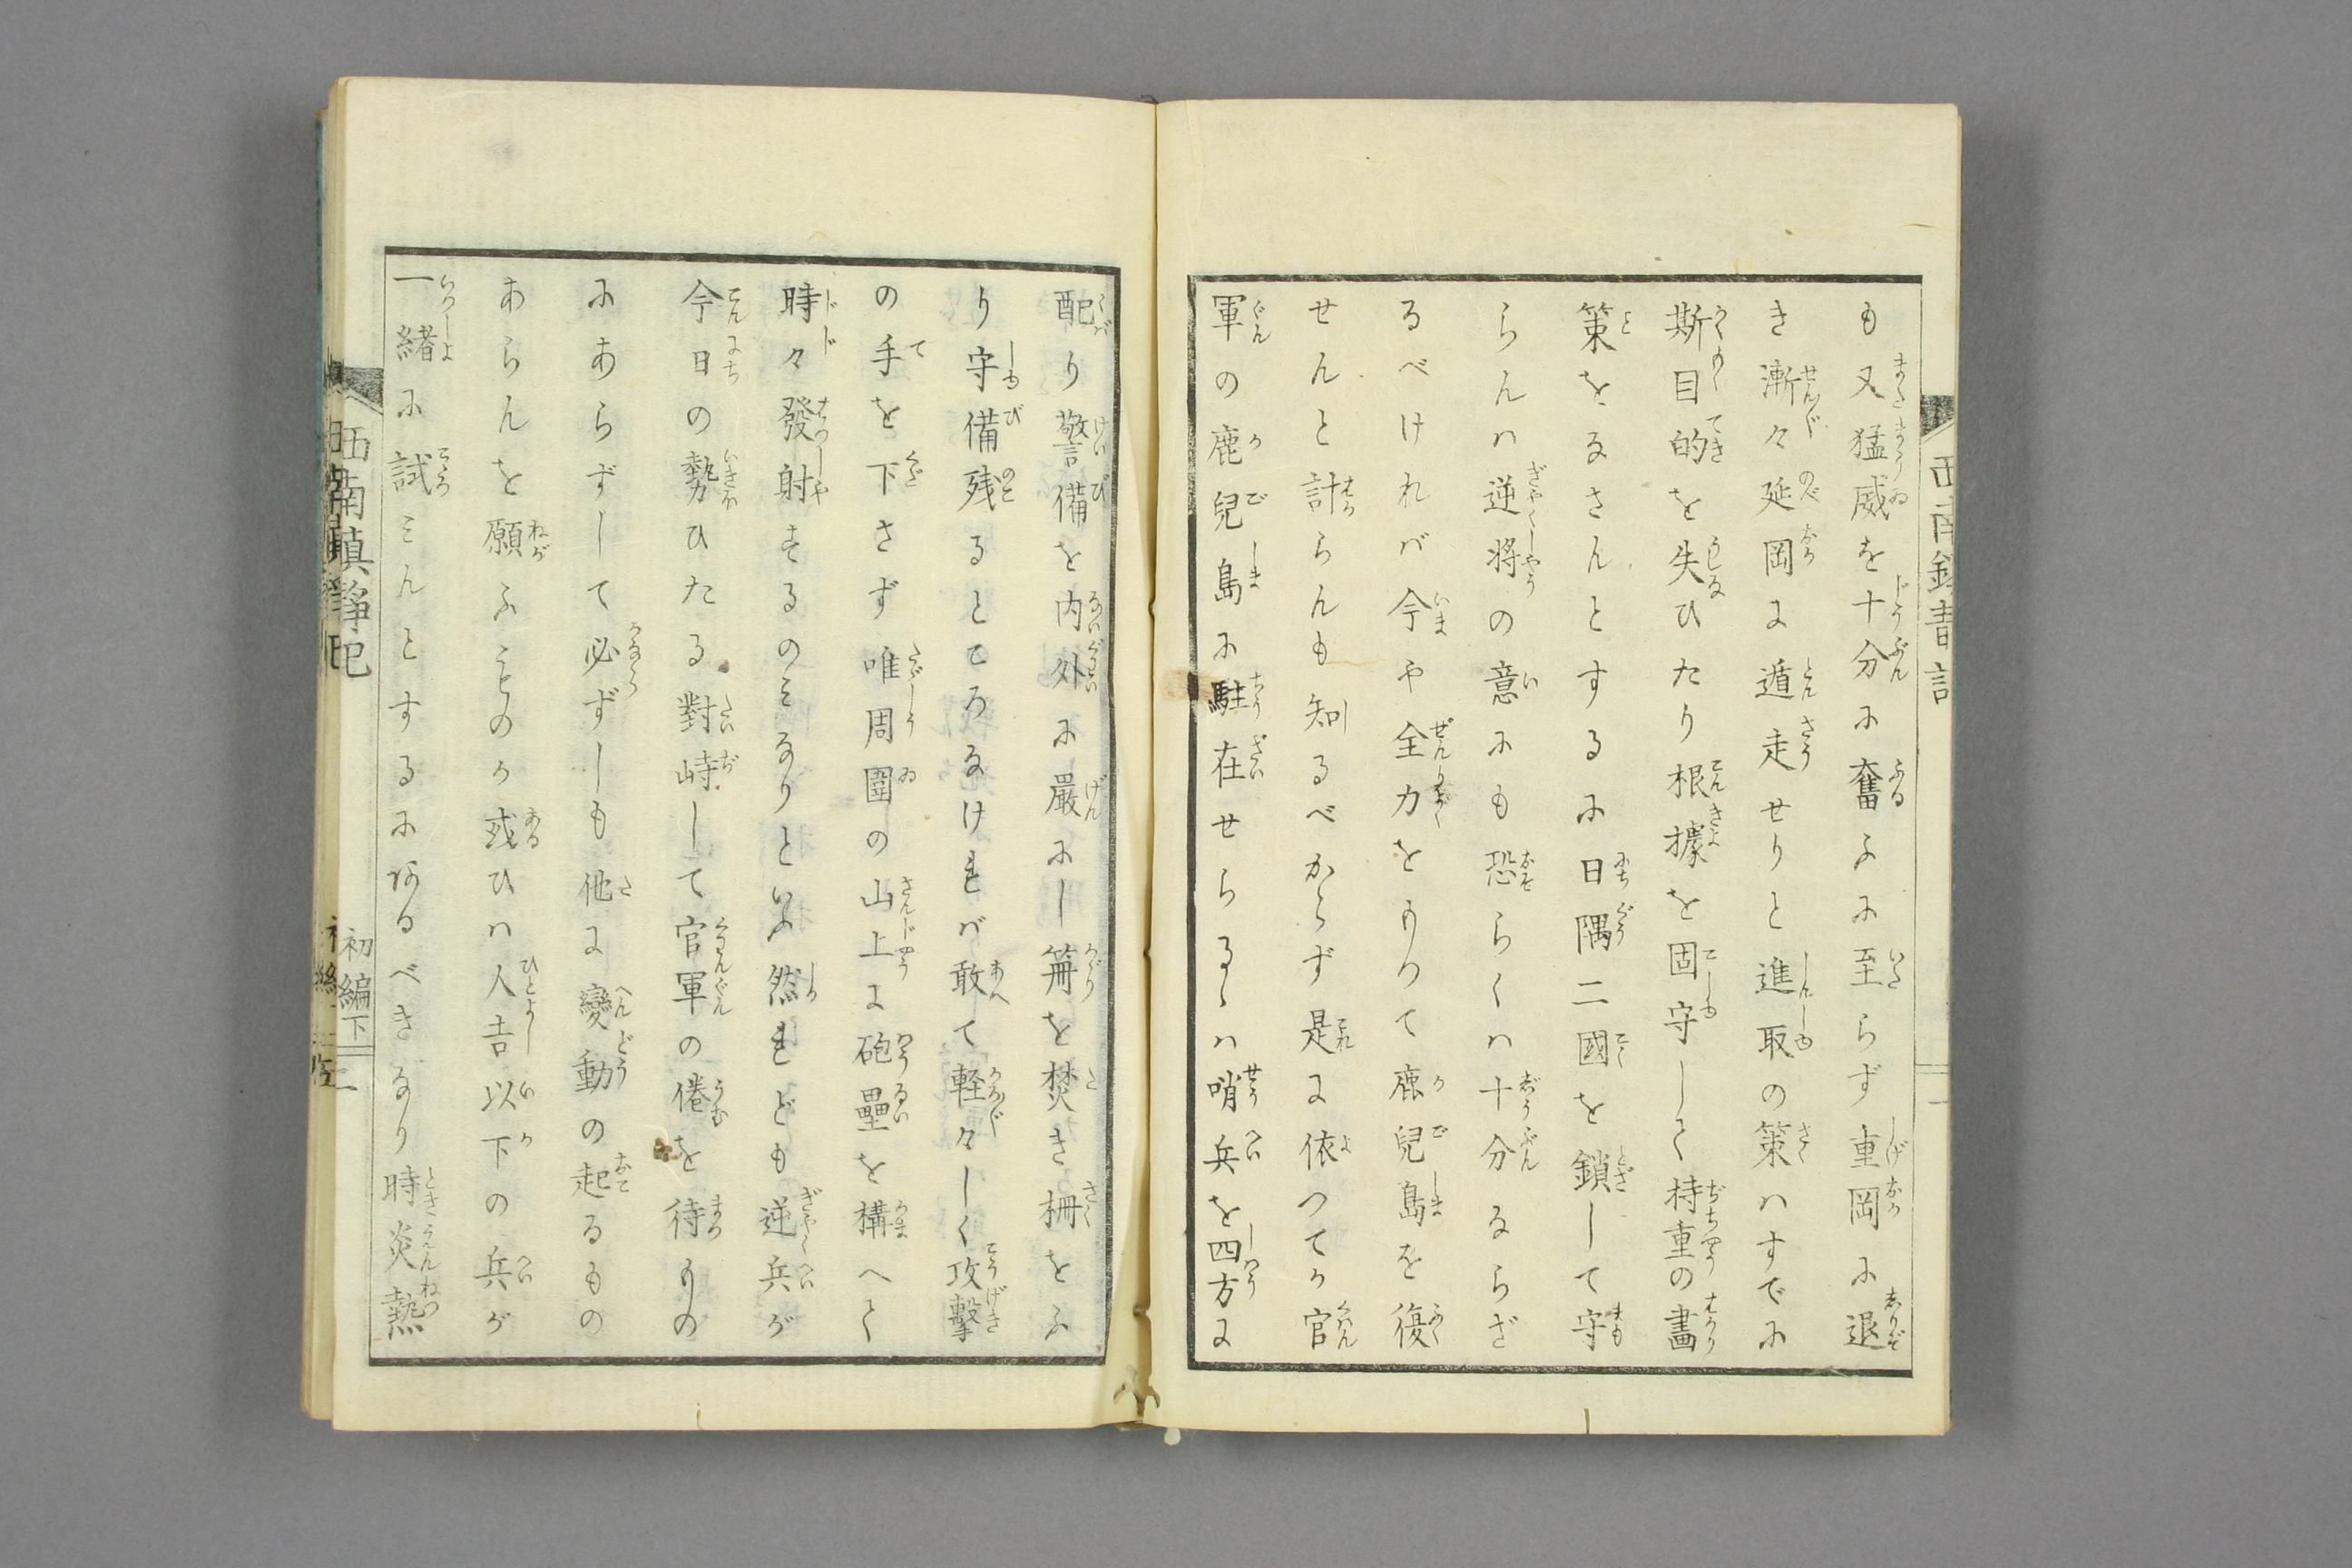 も又猛威を十分に奮ふに至らず重岡に退
き漸々延岡に遁走せりと進取の策ハすでに
斯目的を失ひたり根據を固守して持重の畫
策をなさんとするに日隅二國を鎖して守
らんハ逆将の意にも恐らくハ十分ならざ
るべけれバ今や全力をもつて鹿兒島を復
せんと計らんも知るべからず是に依つてか官
軍の鹿兒島に駐在せらるゝハ哨兵を四方に
配り警備を内外に嚴にし篝を焚き柵をふ
り守備残るところなけれバ敢て軽々しく攻撃
の手を下さず唯周圍の山上に砲壘を構へて
時々發射するのミなりといふ然れども逆兵が
今日の勢ひたる對峙して官軍の倦を待もの
にあらずして必ずしも他に變動の起るもの
あらんを願ふものか或ひハ人吉以下の兵が
一緒に試ミんとするにあるべきなり時炎熱
西南鎮静記 初編下 二